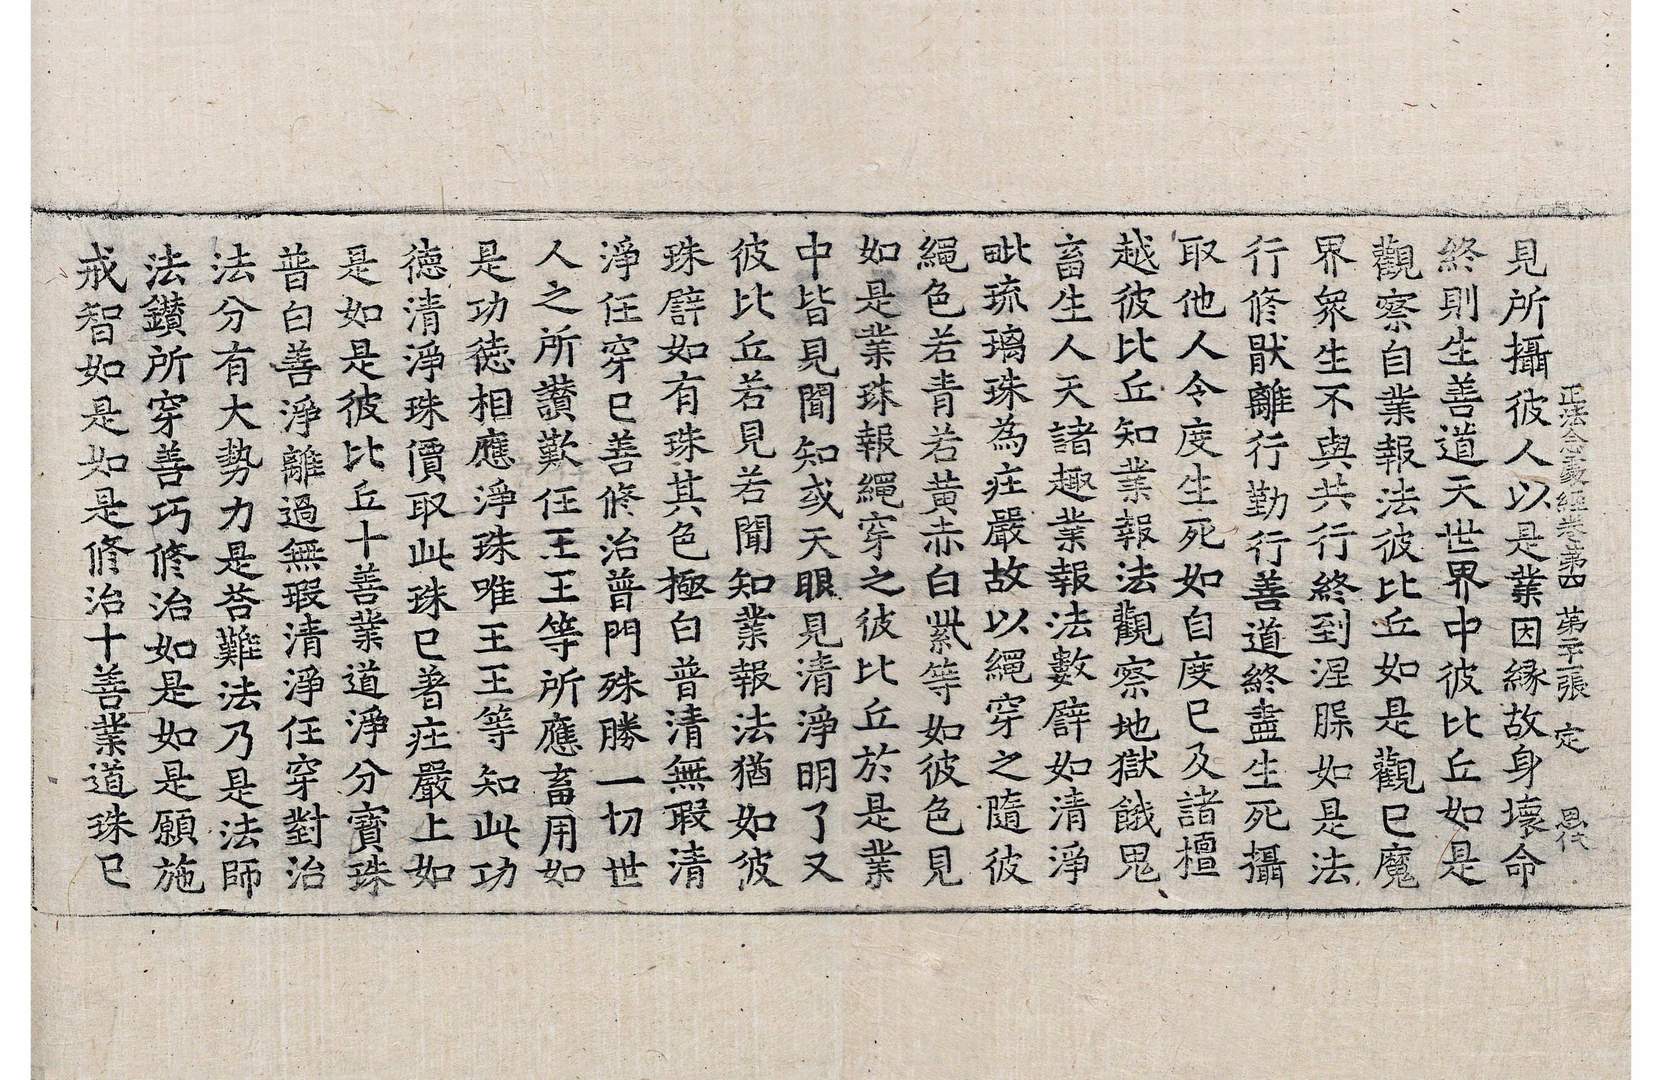 正法念處經卷第四　第二十張　定
見所攝彼人以是業因縁故身壞命
終則生善道天世界中彼比丘如是
觀察自業報法彼比丘如是觀已魔
界衆生不與共行終到涅槃如是法
行修猒離行勤行善道終盡生死攝
取他人令度生死如自度已及諸檀
越彼比丘知業報法觀察地獄餓鬼
畜生人天諸趣業報法數譬如清淨
毗琉璃珠為莊嚴故以繩穿之隨彼
繩色若青若黃赤白紫等如彼色見
如是業珠報繩穿之彼比丘於是業
中皆見聞知或天眼見清淨明了又
彼比丘若見若聞知業報法猶如彼
珠譬如有珠其色極白普清無瑕清
淨任穿已善修治普門殊勝一切世
人之所讚歎任王王等所應畜用如
是功德相應淨珠唯王王等知此功
德清淨珠價取此珠已著莊嚴上如
是如是彼比丘十善業道淨分寶珠
普白善淨離過無瑕清淨任穿對治
法分有大勢力是荅難法乃是法師
法鑚所穿善巧修治如是如是願施
戒智如是如是修治十善業道珠已